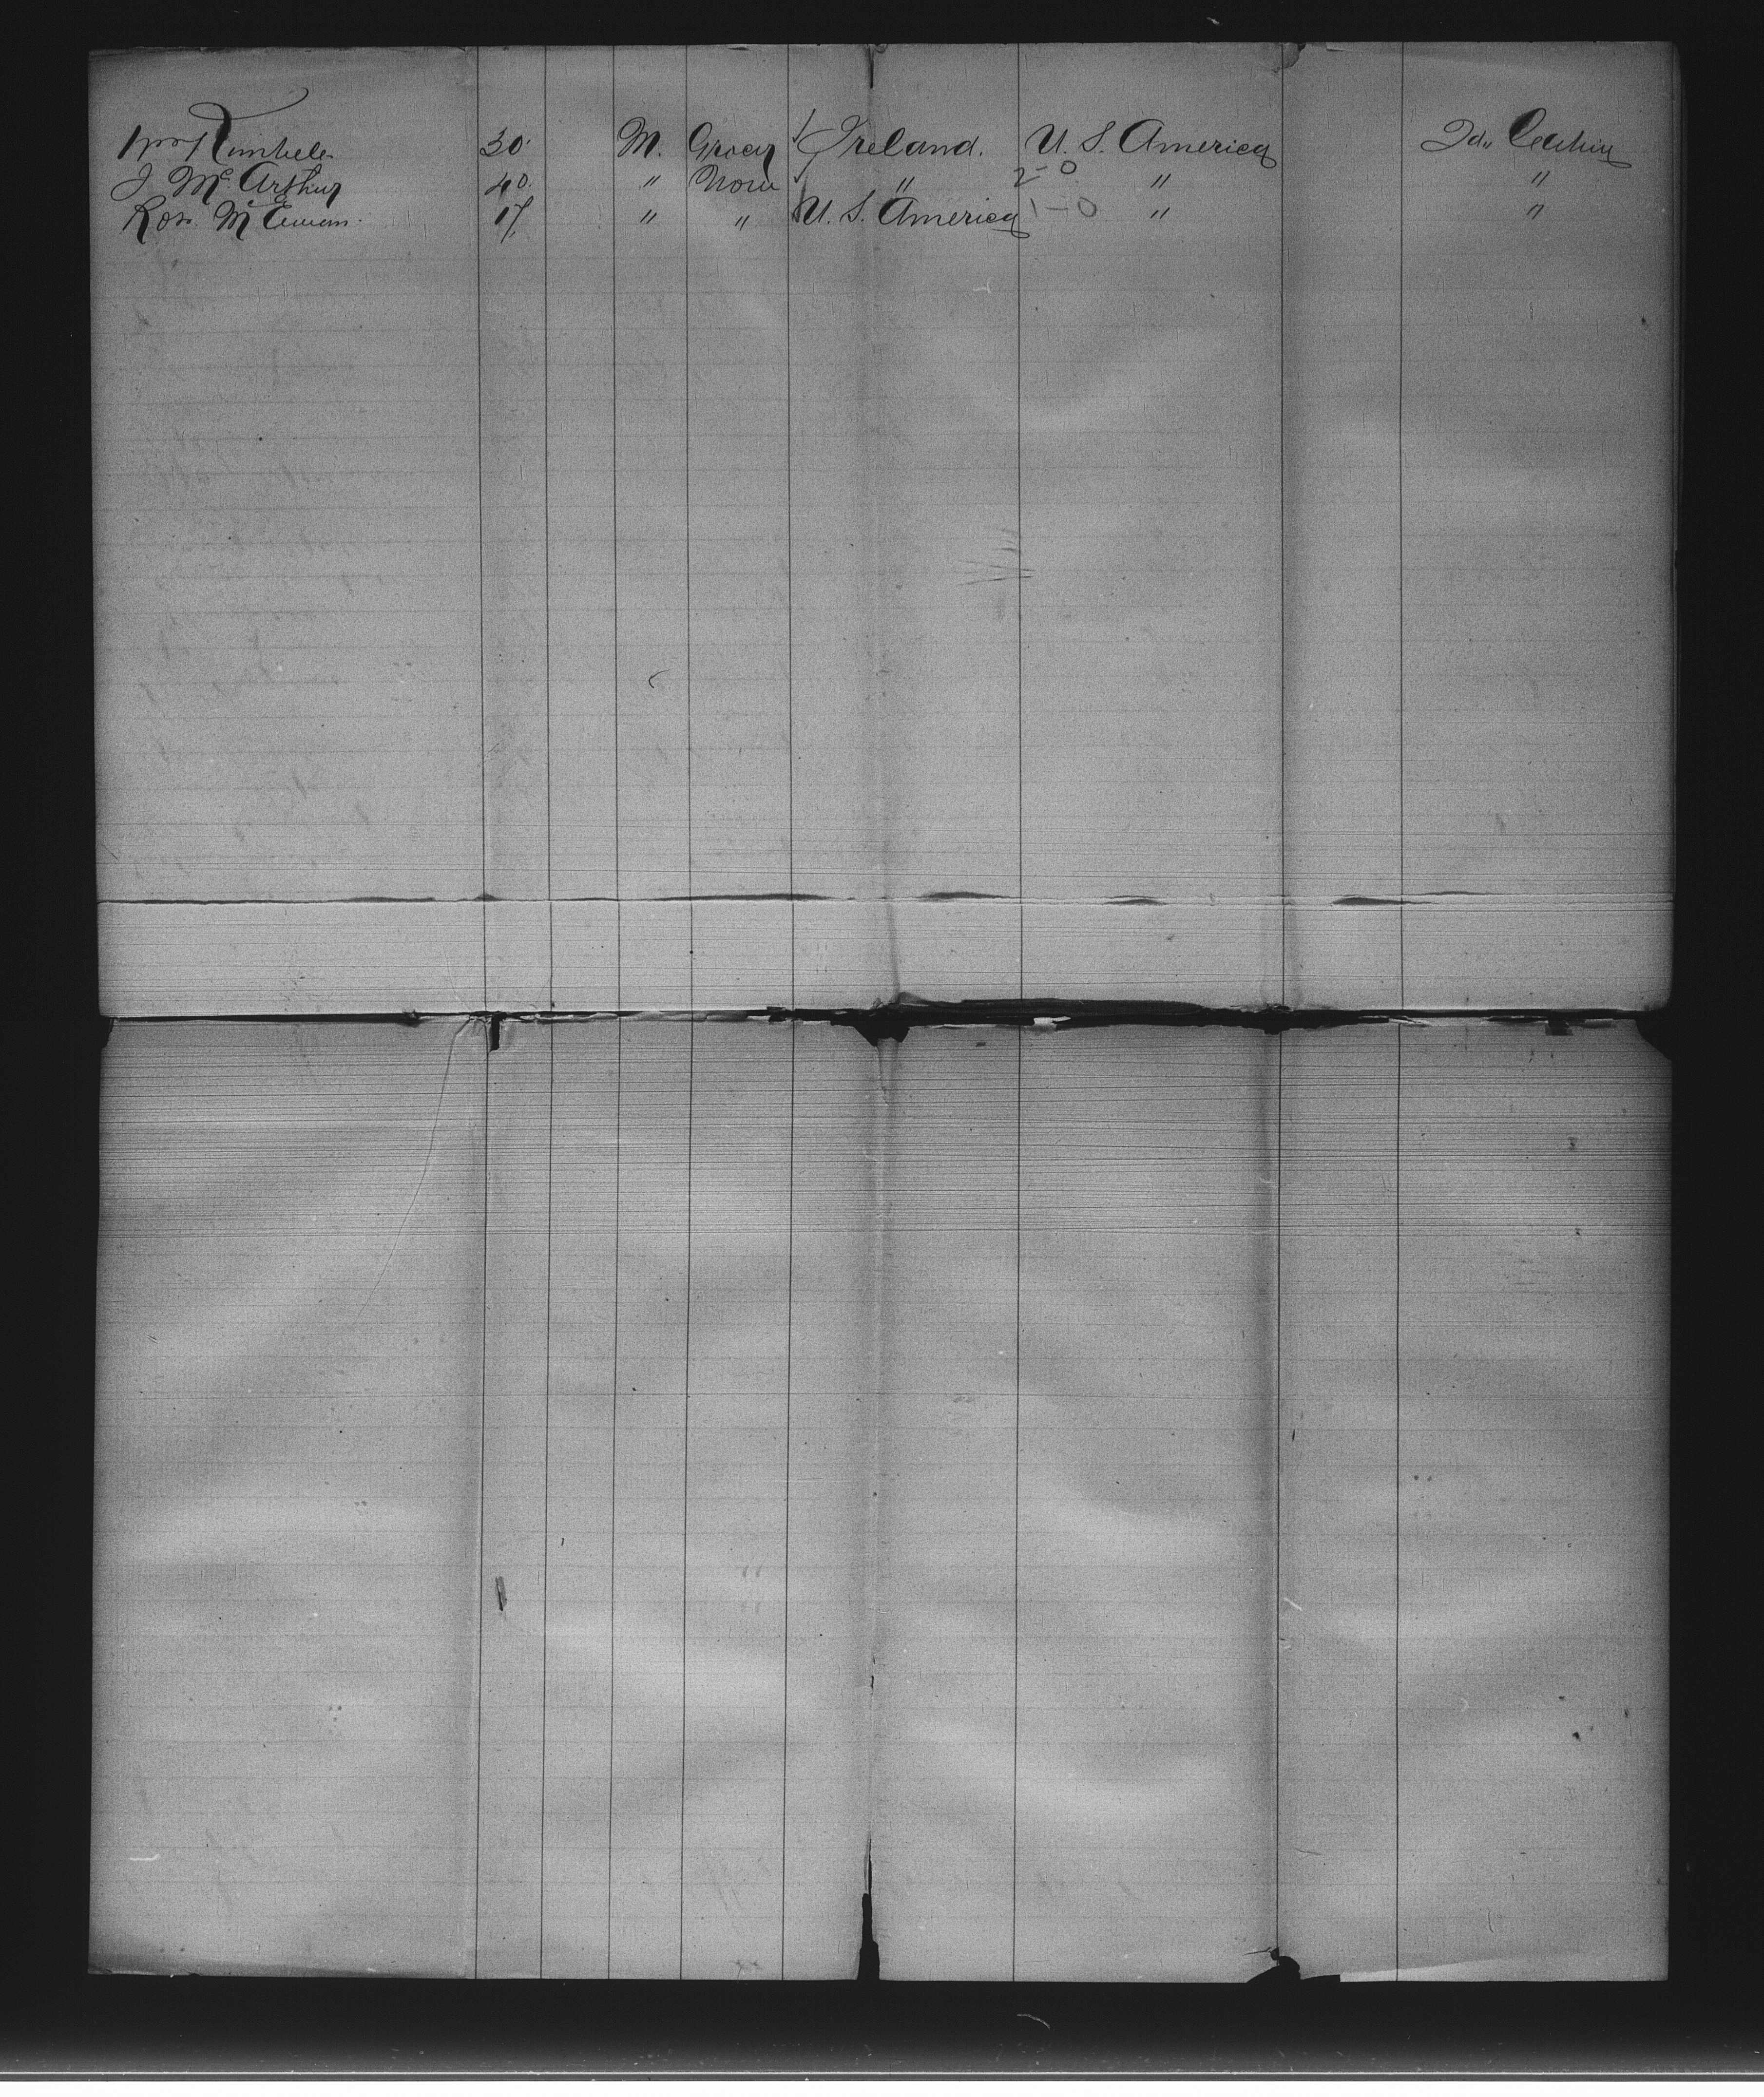 Wm 30 M. Grocer Ireland. U. S. America 2d Cabin
J McArthur 40. " None " 2-0 " "
17 " " U. S. America 1-0 " "